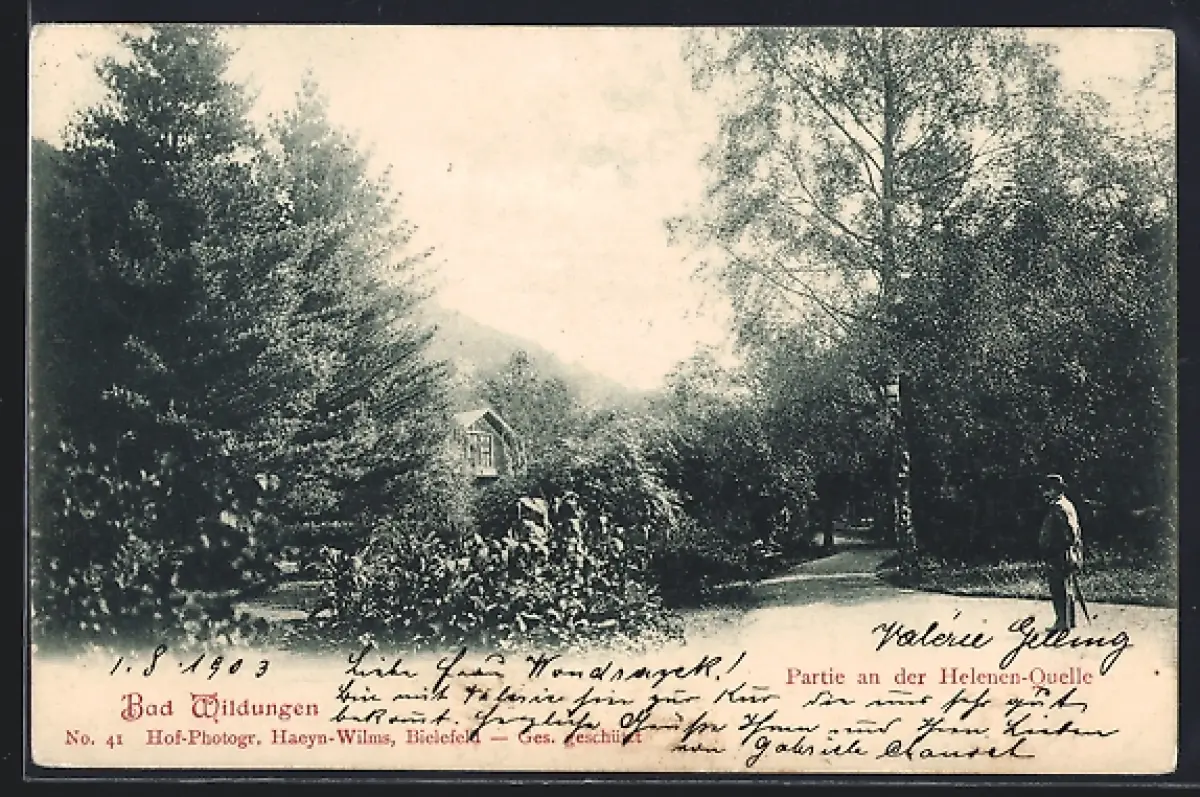 Valérie Gelling
1.8.1903
Liebe Frau Wondraczek!
Partie an der Helenen-Quelle
bin mit Valerie hier zur Kur die uns sehr gut
Bad Wildungen
bekomt. Herzliche Grüße Ihnen und Ihren Lieben
No. 41 Hof-Photogr. Haeyn-Wilms, Bielefeld — Ges. geschützt
von Gabriele